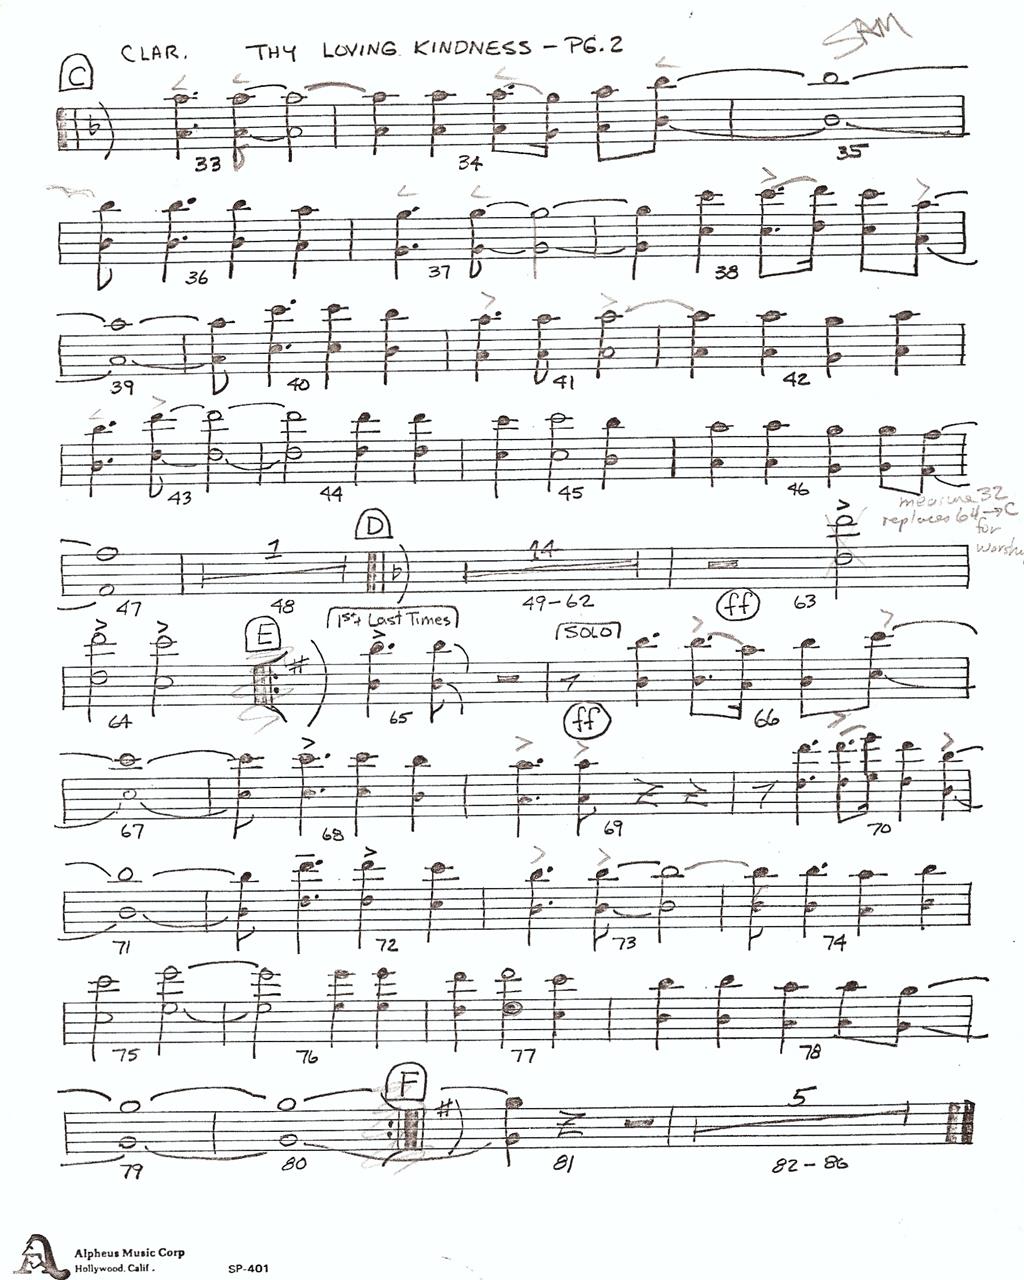 SAM
CLAR. THY LOVING KINDNESS – PG. 2
C
33 34 35
36 37 38
39 40 41 42
43 44 45 46
measure 32
replaces 64→C
for
worship
1 D 14
47 48 49-62 ff 63
E 1st & Last Times SOLO
64 65 ff 66
67 68 69 70
71 72 73 74
75 76 77 78
F 5
79 80 81 82-86
Alpheus Music Corp
Hollywood, Calif.
SP-401